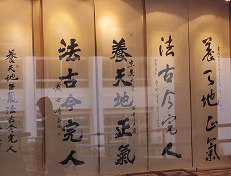 養天地正氣
法古今完人
養天地正氣
法古今完人
養天地正氣法古今完人